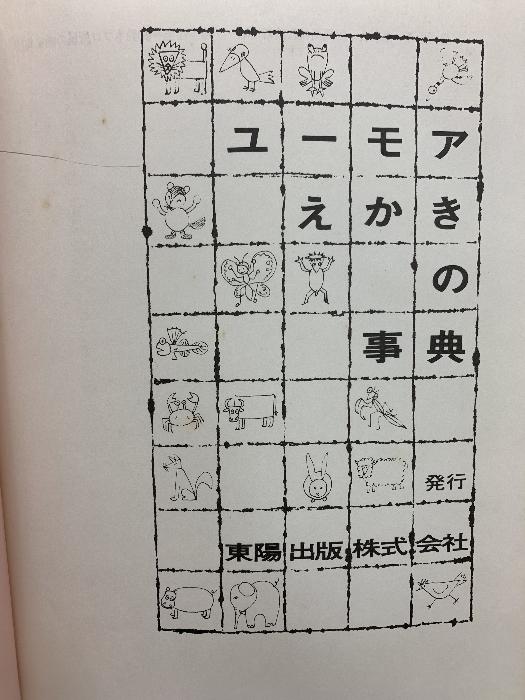 ユーモア
えかき
の
事典
発行
東陽出版株式会社